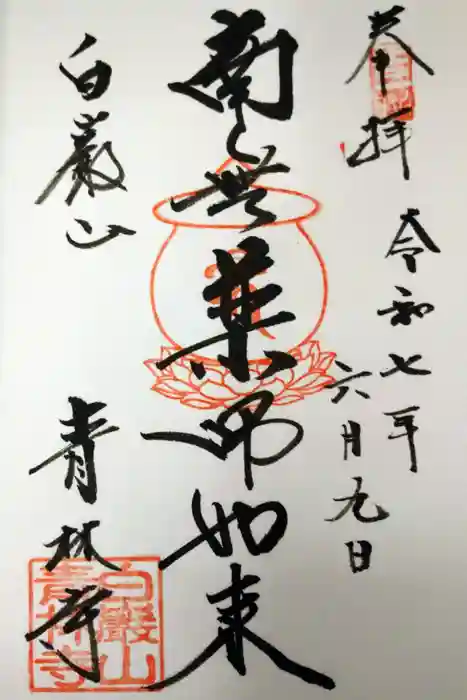 奉拝
令和七年
六月九日
南無薬師如来
白巌山
青林寺
白巌山
青林寺